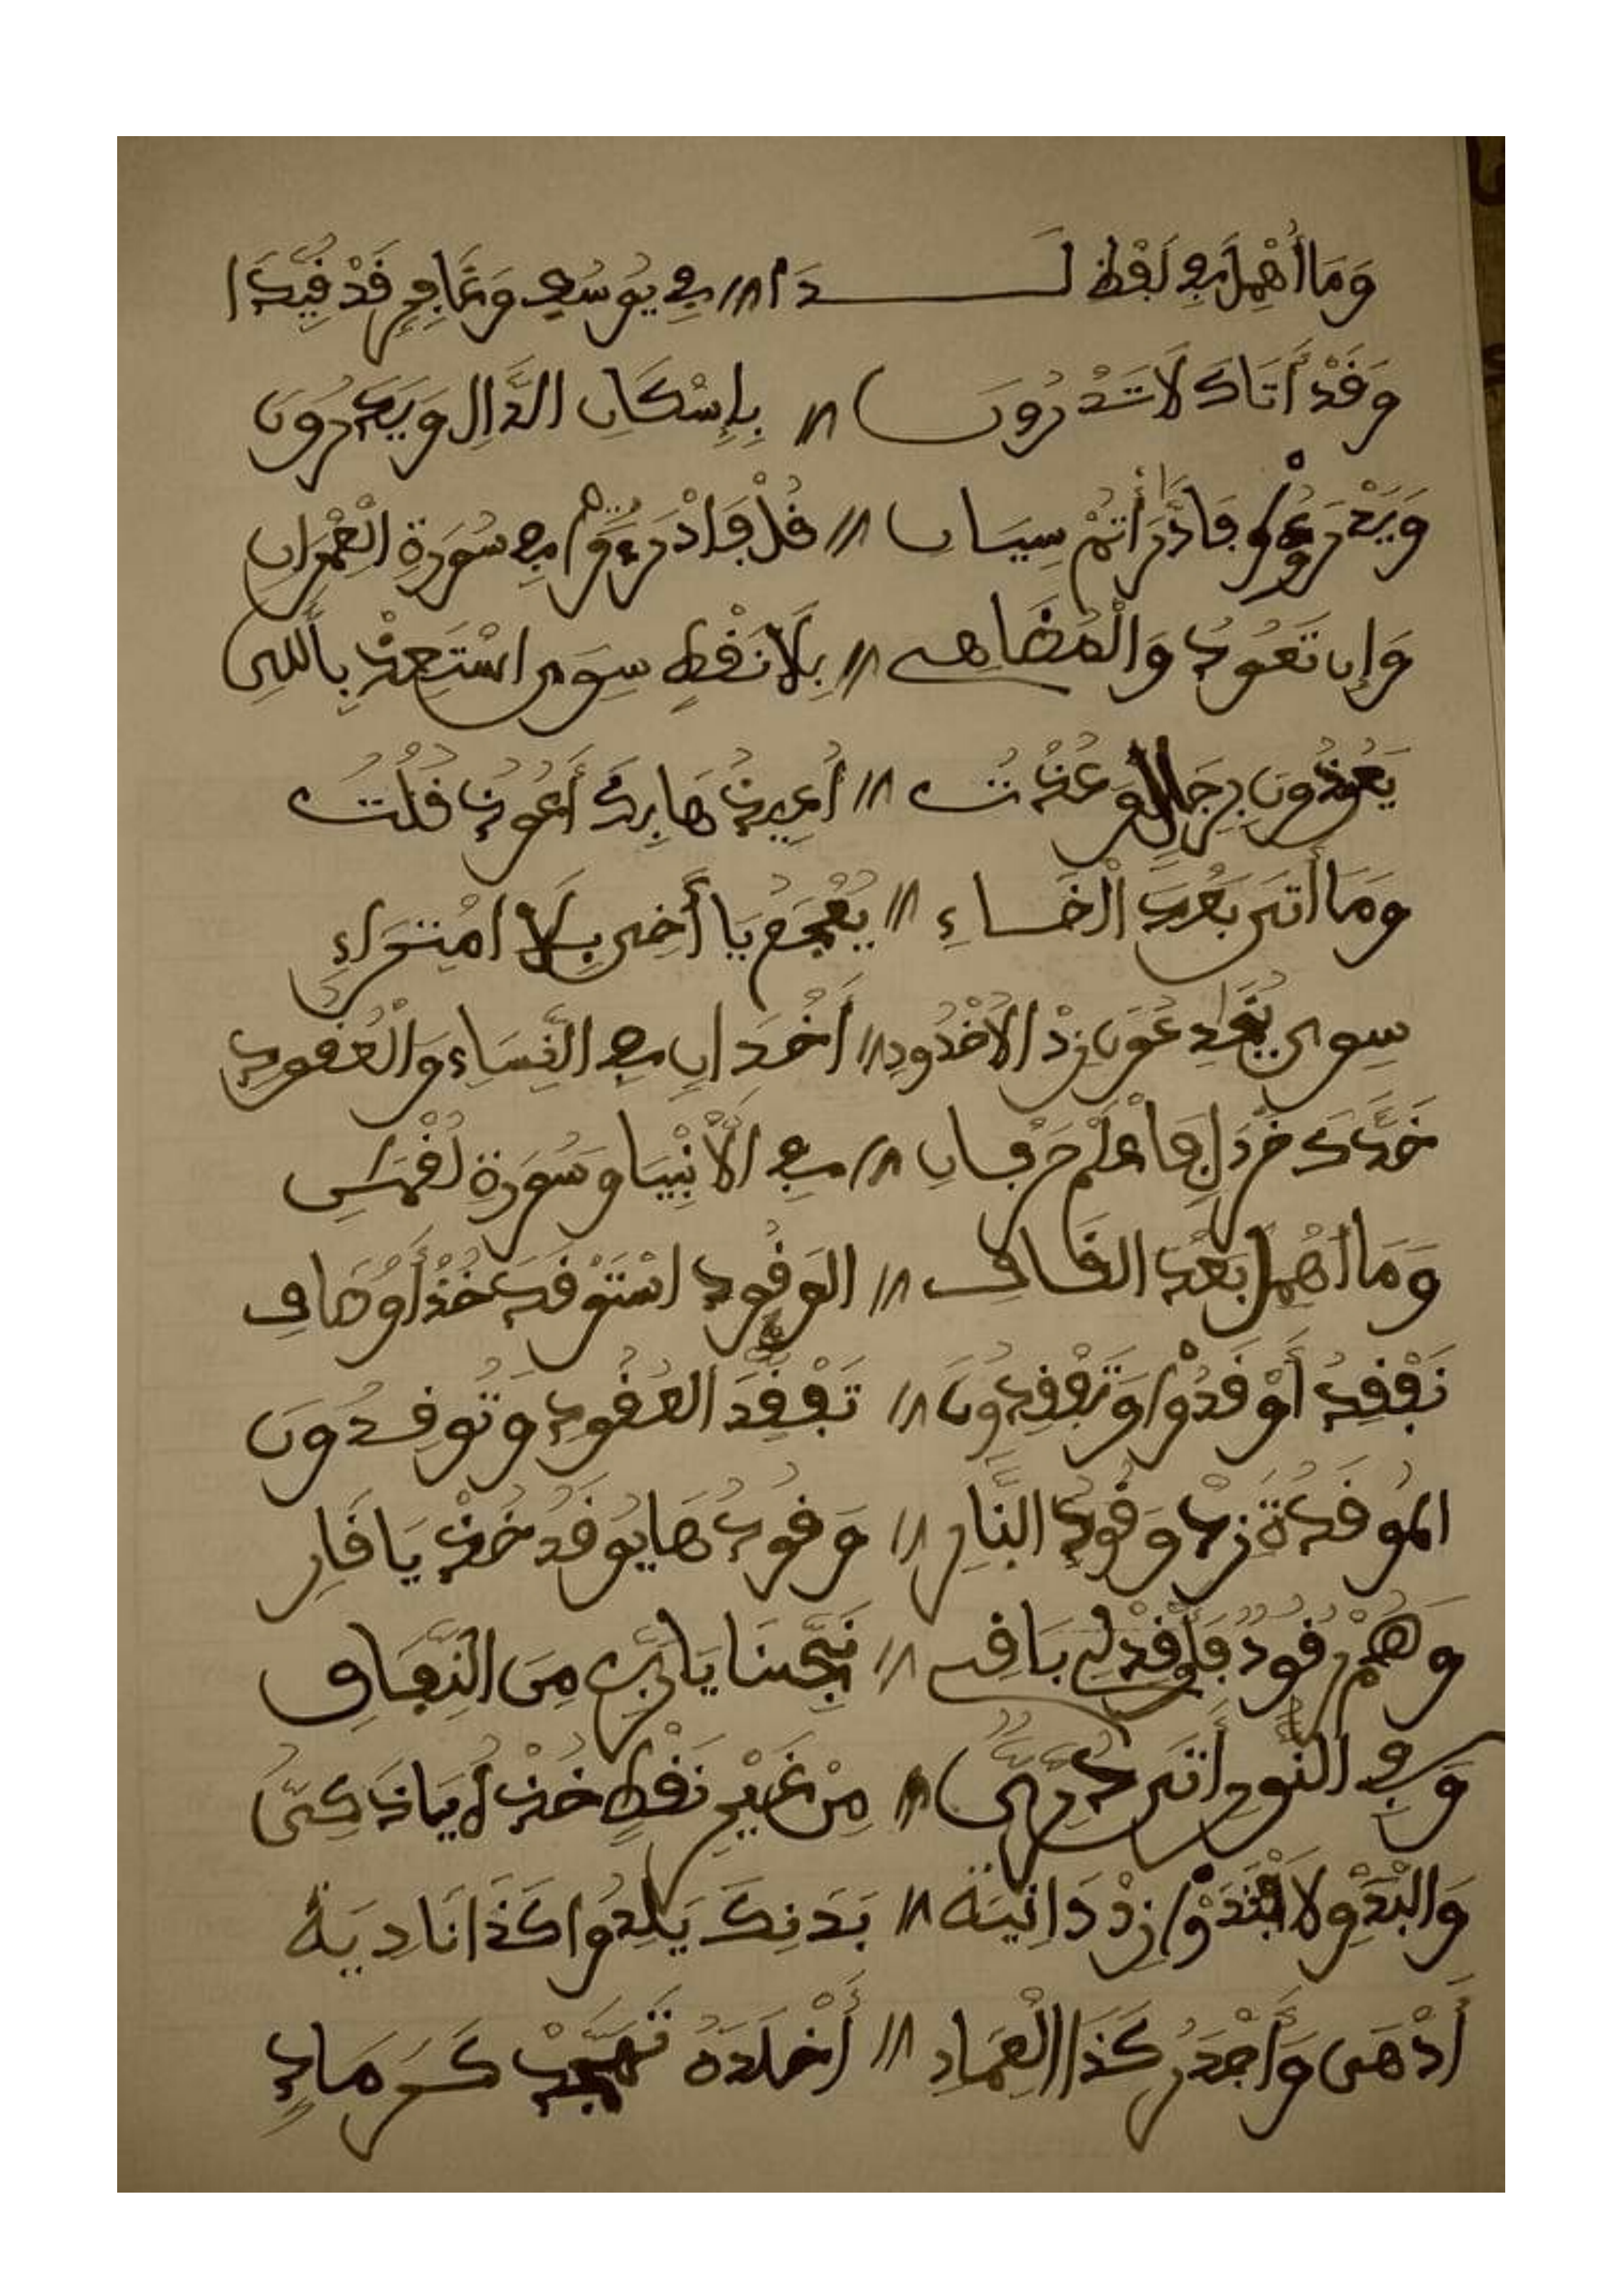 وَمَا أُهْمِلَ فِي لَفْظِ لَـــــدَا // فِي يُوسُفَ وَغَافِرٍ قَدْ قُيِّدَا
وَقَدْ أَتَاكَ لَا تَدْرُونَ // بِإِسْكَانِ الدَّالِ وَيَدْرُونَ
وَيَدْرَؤُا فَادَّارَأْتُمْ سِيَانِ // قُلْ فَادْرَءُوا فِي سُورَةِ الْعِمْرَانِ
وَإِن تَعُودُ وَالْمُضَاهِي // بِلَا نَقْطٍ سِوَى اسْتَعِذْ بِاللهِ
يَعُوذُونَ بِرِجَالٍ وَعُذْتُ // أُعِيذُهَا بِكَ أَعُوذُ قُلْتُ
وَمَا أَتَى بَعْدَ الْخَاءِ // يُعْجَمُ يَا أَخِي بِلَا امْتِرَاءِ
سِوَى يُخَادِعُونَ زِدْ الْأُخْدُودِ // أَخْدَانٍ فِي النِّسَاءِ وَالْعُقُودِ
خَدَّكَ خَرْدَلٍ فَاعْلَمْ حَرْفَانِ // فِي الْأَنْبِيَا وَسُورَةِ لُقْمَـنِ
وَمَا أُهْمِلَ بَعْدَ الْقَافِ // الوَقُودِ اسْتَوْقَدَ خُذْ أَوْصَافِ
نَفْقِدُ أَوْقَدُوا وَتَفْقِدُونَ // تَفَقَّدَ الْعُقُودِ وَتُوقِدُونَ
الْمُوقَدَةُ زِدْ وَقُودِ النَّارِ // وَقُودُهَا يُوقَدُ خُذْ يَا قَارِ
وَهُمْ رُقُودٌ فَأَوْقِدْ لِي بَاقِي // نَجِّنَا يَا رَبِّ مِنَ النِّفَاقِ
وَفِي النُّورِ أَتَى دُرِّيٌّ // مِنْ غَيْرِ نَقْطٍ خُذْ
وَالْبَدْوِ لَافْتَدَوْا زِدْ دَانِيَة // بَدَنِكَ يَلِدُوا كَذَا نَادِيَهُ
أَدْهَى وَأَجْدَرُ كَذَا الْعِمَادِ // أَخْلَدَهُ تَهَجَّدْ كَرَمَادٍ